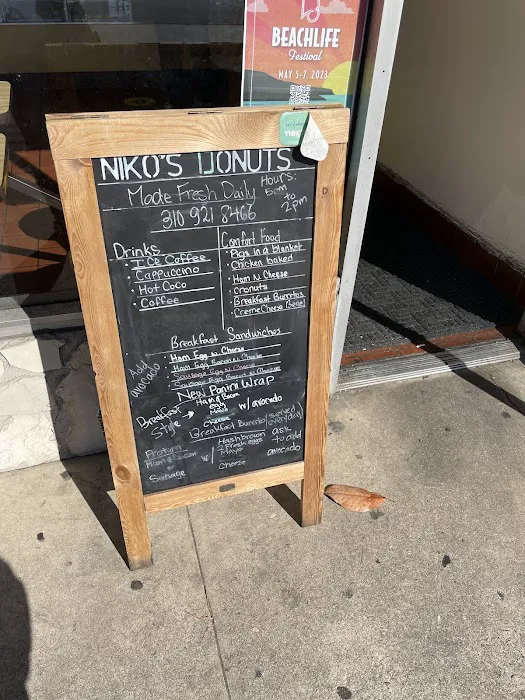 BEACHLIFE
Festival
MAY 5-7, 2023
NIKO'S DONUTS
Made Fresh Daily
310 921 8466
Hours:
5am
to
2pm
Drinks
Ice Coffee
Cappuccino
Hot Coco
Coffee
Comfort Food
Pigs in a blanket
Chicken baked
Ham N Cheese
Cronuts
Breakfast Burritos
Creme Cheese Bagel
Breakfast Sandwiches
Ham Egg N Cheese
Ham Egg Bacon N Cheese
Sausage Egg N Cheese
Sausage Egg Bacon N Cheese
Add
avocado
New Panini Wrap
Breakfast
Style
Ham & Bacon
egg
Mayo
cheese
w/ avocado
Breakfast Burrito/served
everyday
Protein
Ham
or
Sausage
w/
Hashbrown
2 Fresh eggs
Mayo
Cheese
ask
to add
avocado